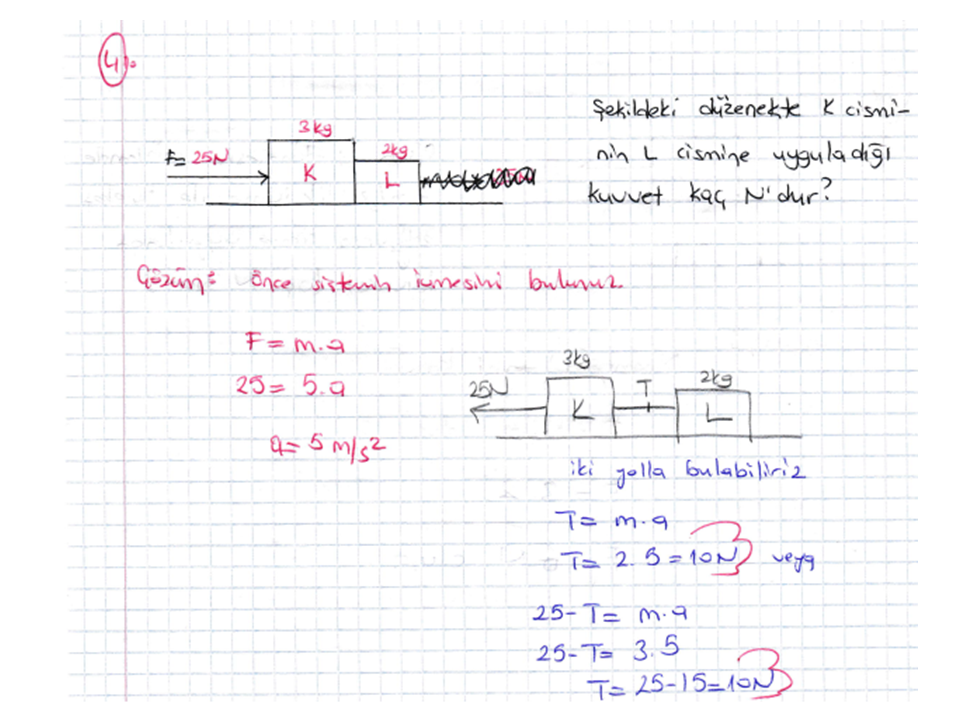 4.
3kg
F= 25N
K
2kg
L
Şekildeki düzenekte K cismi-
nin L cismine uyguladığı
kuvvet kaç N'dur?
Çözüm: önce sistemin ivmesini buluruz.
F = m.a
25 = 5.a
a = 5 m/s²
3kg
25N
K
T
2kg
L
iki yolla bulabiliriz
T = m.a
T = 2.5 = 10N veya
25-T = m.a
25-T = 3.5
T = 25-15 = 10N